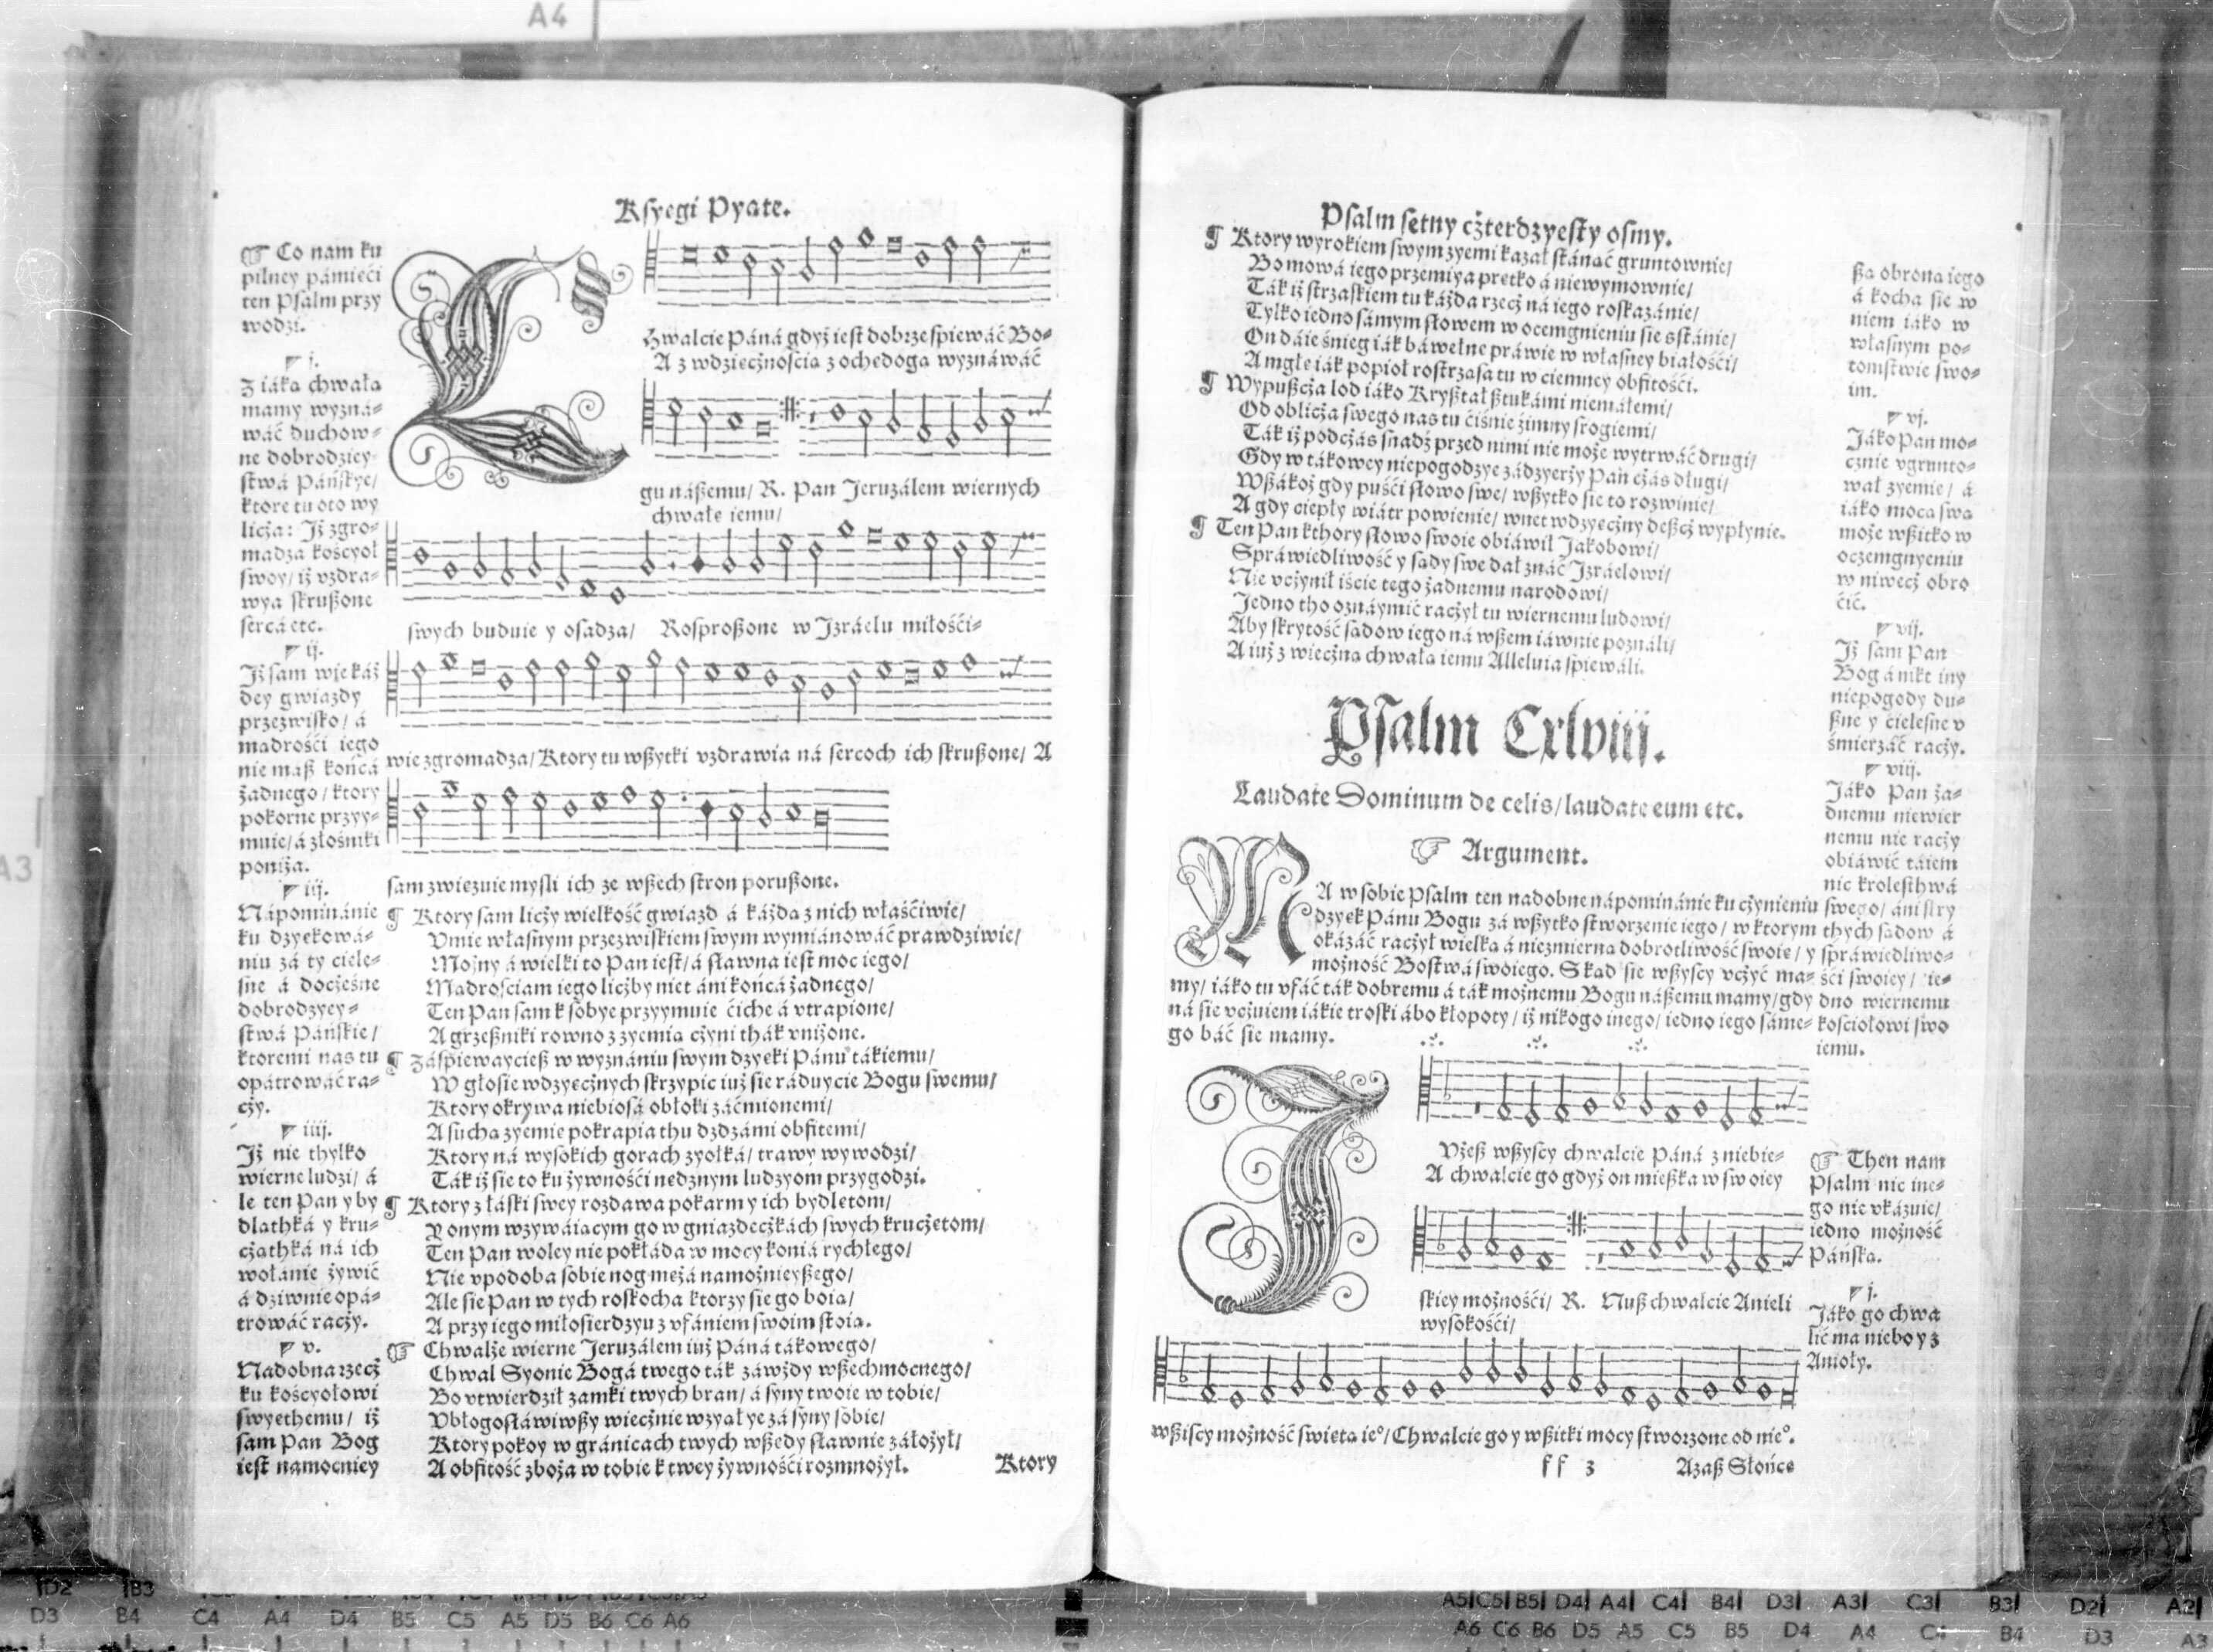 Ksyegi Pyate.
☞ Co nam ku
pilney pámięći
ten Psalm przy
wodzi.
j.
Z iáką chwałą
mamy wyzná⸗
wáć duchow⸗
ne dobrodziey
stwá Páńskye/
ktore tu oto wy
licża: Iż zgro⸗
madza kośćyoł
swoy/ iż vzdra⸗
wya skrußone
sercá etc.
ij.
Iż sam wie káż
dey gwiazdy
przezwisko/ á
mądrośći iego
nie máß końcá
żadnego/ ktory
pokorne przyy⸗
muie/ á złośniki
poniża.
iij.
Nápominánie
ku dzyękowá⸗
niu zá ty ciele⸗
sne á docżesne
dobrodzyey⸗
stwá Páńskie/
ktoremi nas tu
opátrowáć ra⸗
cży.
iiij.
Iż nie thylko
wierne ludzi/ á
le ten Pan y by
dlathká y kru⸗
cżathká ná ich
wołánie żywić
á dziwnie opá⸗
trowáć racży.
v.
Nadobna rzecż
ku kościołowi
swyethemu/ iż
sam Pan Bog
iest namocniey
Hwalcie Páná gdyż iest dobrze spiewáć Bo⸗
A z wdziecżnością z ochędogą wyznáwáć
gu nášemu/ R. Pan Jeruzálem wiernych
chwałę iemu/
swych buduie y osadza/ Rosproßone w Izráelu miłośći⸗
wie zgromadza/ Ktory tu wßytki vzdrawia ná sercoch ich skrußone/ A
sam zwięzuie mysli ich ze wßech stron porußone.
¶ Ktory sam licży wielkość gwiazd á káżdą z nich właśćiwie/
Vmie własnym przezwiskiem swym wymiánowáć prawdziwie/
Możny á wielki to Pan iest/ á sławna iest moc iego/
Mądrosciam iego licżby niet áni końcá żadnego/
Ten Pan sam k sobye przyymuie ćiche á vtrapione/
A grzeßniki rowno z zyemią cżyni thák vniżone.
¶ Záspiewaycieß w wyznániu swym dzyęki Pánu tákiemu/
W głosie wdzyęcżnych skrzypic iuż sie ráduycie Bogu swemu/
Ktory okrywa niebiosá obłoki záćmionemi/
A suchą zyemię pokrapia thu dżdżámi obfitemi/
Ktory ná wysokich gorach zyołká/ trawy wywodzi/
Ták iż sie to ku żywnośći nędznym ludzyom przygodzi.
¶ Ktory z łáski swey rozdawa pokarm y ich bydlętom/
Y onym wzywáiącym go w gniazdecżkách swych krucżętom/
Ten Pan woley nie pokłáda w mocy koniá rychłego/
Nie vpodoba sobie nog mężá namożnieyßego/
Ale sie Pan w tych roskocha ktorzy sie go boią/
A przy iego miłosierdzyu z vfániem swoim stoią.
☞ Chwalże wierne Jeruzálem iuż Páná tákowego/
Chwal Syonie Bogá twego ták záwżdy wßechmocnego/
Bo vtwierdził zamki twych bran/ á syny twoie w tobie/
Vbłogosłáwiwßy wiecżnie wzyął ye zá syny sobie/
Ktory pokoy w gránicach twych wßędy sławnie záłożył/
A obfitość zboża w tobie k twey żywnośći rozmnożył.
Ktory
Psalm setny cżterdzyesty osmy.
¶ Ktory wyrokiem swym zyemi kazał stánąć gruntownie/
Bo mowá iego przemiya prętko á niewymownie/
Ták iż strzaskiem tu káżda rzecż ná iego roskazánie/
Tylko iedno sámym słowem w ocemgnieniu sie sstánie/
On dáie śnieg iák báwełnę práwie w własney białośći/
A mgłę iák popioł rostrząsa tu w ciemney obfitośći.
¶ Wypußcża lod iáko Kryßtał ßtukámi niemáłemi/
Od oblicża swego nas tu ćiśnie źimny srogiemi/
Ták iż podcżás snadź przed nimi nie może wytrwáć drugi/
Gdy w tákowey niepogodzye zádzyerży Pan cżás długi/
Wßákoż gdy puśći słowo swe/ wßytko sie to rozwinie/
A gdy ciepły wiátr powienie/ wnet wdzyęcżny deßcż wypłynie.
¶ Ten Pan kthory słowo swoie obiáwił Jakobowi/
Spráwiedliwość y sądy swe dał znáć Izráelowi/
Nie vcżynił iście tego żadnemu narodowi/
Jedno tho oznáymić racżył tu wiernemu ludowi/
Aby skrytość sądow iego ná wßem iáwnie poználi/
A iuż z wiecżną chwałą iemu Alleluia spiewáli.
Psalm Cxlviij.
Laudate Dominum de celis/ laudate eum etc.
☞ Argument.
MA w sobie Psalm ten nadobne nápominánie ku cżynieniu
dzyęk Pánu Bogu zá wßytko stworzenie iego/ w ktorym
okázáć racżył wielką á niezmierną dobrotliwość swoię/ y
możność Bostwá swoiego. Skąd sie wßyscy vcżyć ma⸗
my/ iáko tu vfáć ták dobremu á ták możnemu Bogu nášemu mamy/ gdy
ná sie vcżuiem iákie troski ábo kłopoty/ iż nikogo inego/ iedno iego sáme⸗
go báć sie mamy.
ßa obroná iego
á kocha sie w
niem iáko w
własnym po⸗
tomstwie swo⸗
im.
vj.
Jáko Pan mo⸗
cznie vgrunto⸗
wał zyemię/ á
iáko mocą swą
może wßitko w
oczemgnyeniu
w niwecż obro
ćić.
vij.
Iż sam Pan
Bog á nikt iny
niepogody du⸗
ßne y cielesne v
śmierzáć racży.
viij.
Jáko Pan ża⸗
dnemu niewier
nemu nie racży
obiáwić táiem
nic krolesthwá
swego/ áni skry
thych sądow á
spráwiedliwo⸗
śći swoiey/ ie⸗
dno wiernemu
kościołowi swo
iemu.
Vżeß wßyscy chwalcie Páná z niebie⸗
A chwalcie go gdyż on mießka w swoiey
skiey możnośći/ R. Nuß chwalcie Anieli
wysokośći/
wßiscy możność świętą ie°/ Chwalcie go y wßitki mocy stworzone od nie°.
☞ Then nam
Psalm nic ine⸗
go nie vkázuie/
iedno możność
Páńską.
j.
Jáko go chwa
lić ma niebo y z
Anioły.
ff 3
Azaß Słońce
A4
A3
D2 B3
D3 B4 C4 A4 D4 B5 C5 A5 D5 B6 C6 A6
A5 C5 B5 D4 A4 C4 B4 D3 A3 C3 B3 D2 A2
A6 C6 B6 D5 A5 C5 B5 D4 A4 C4 B4 D3 A3